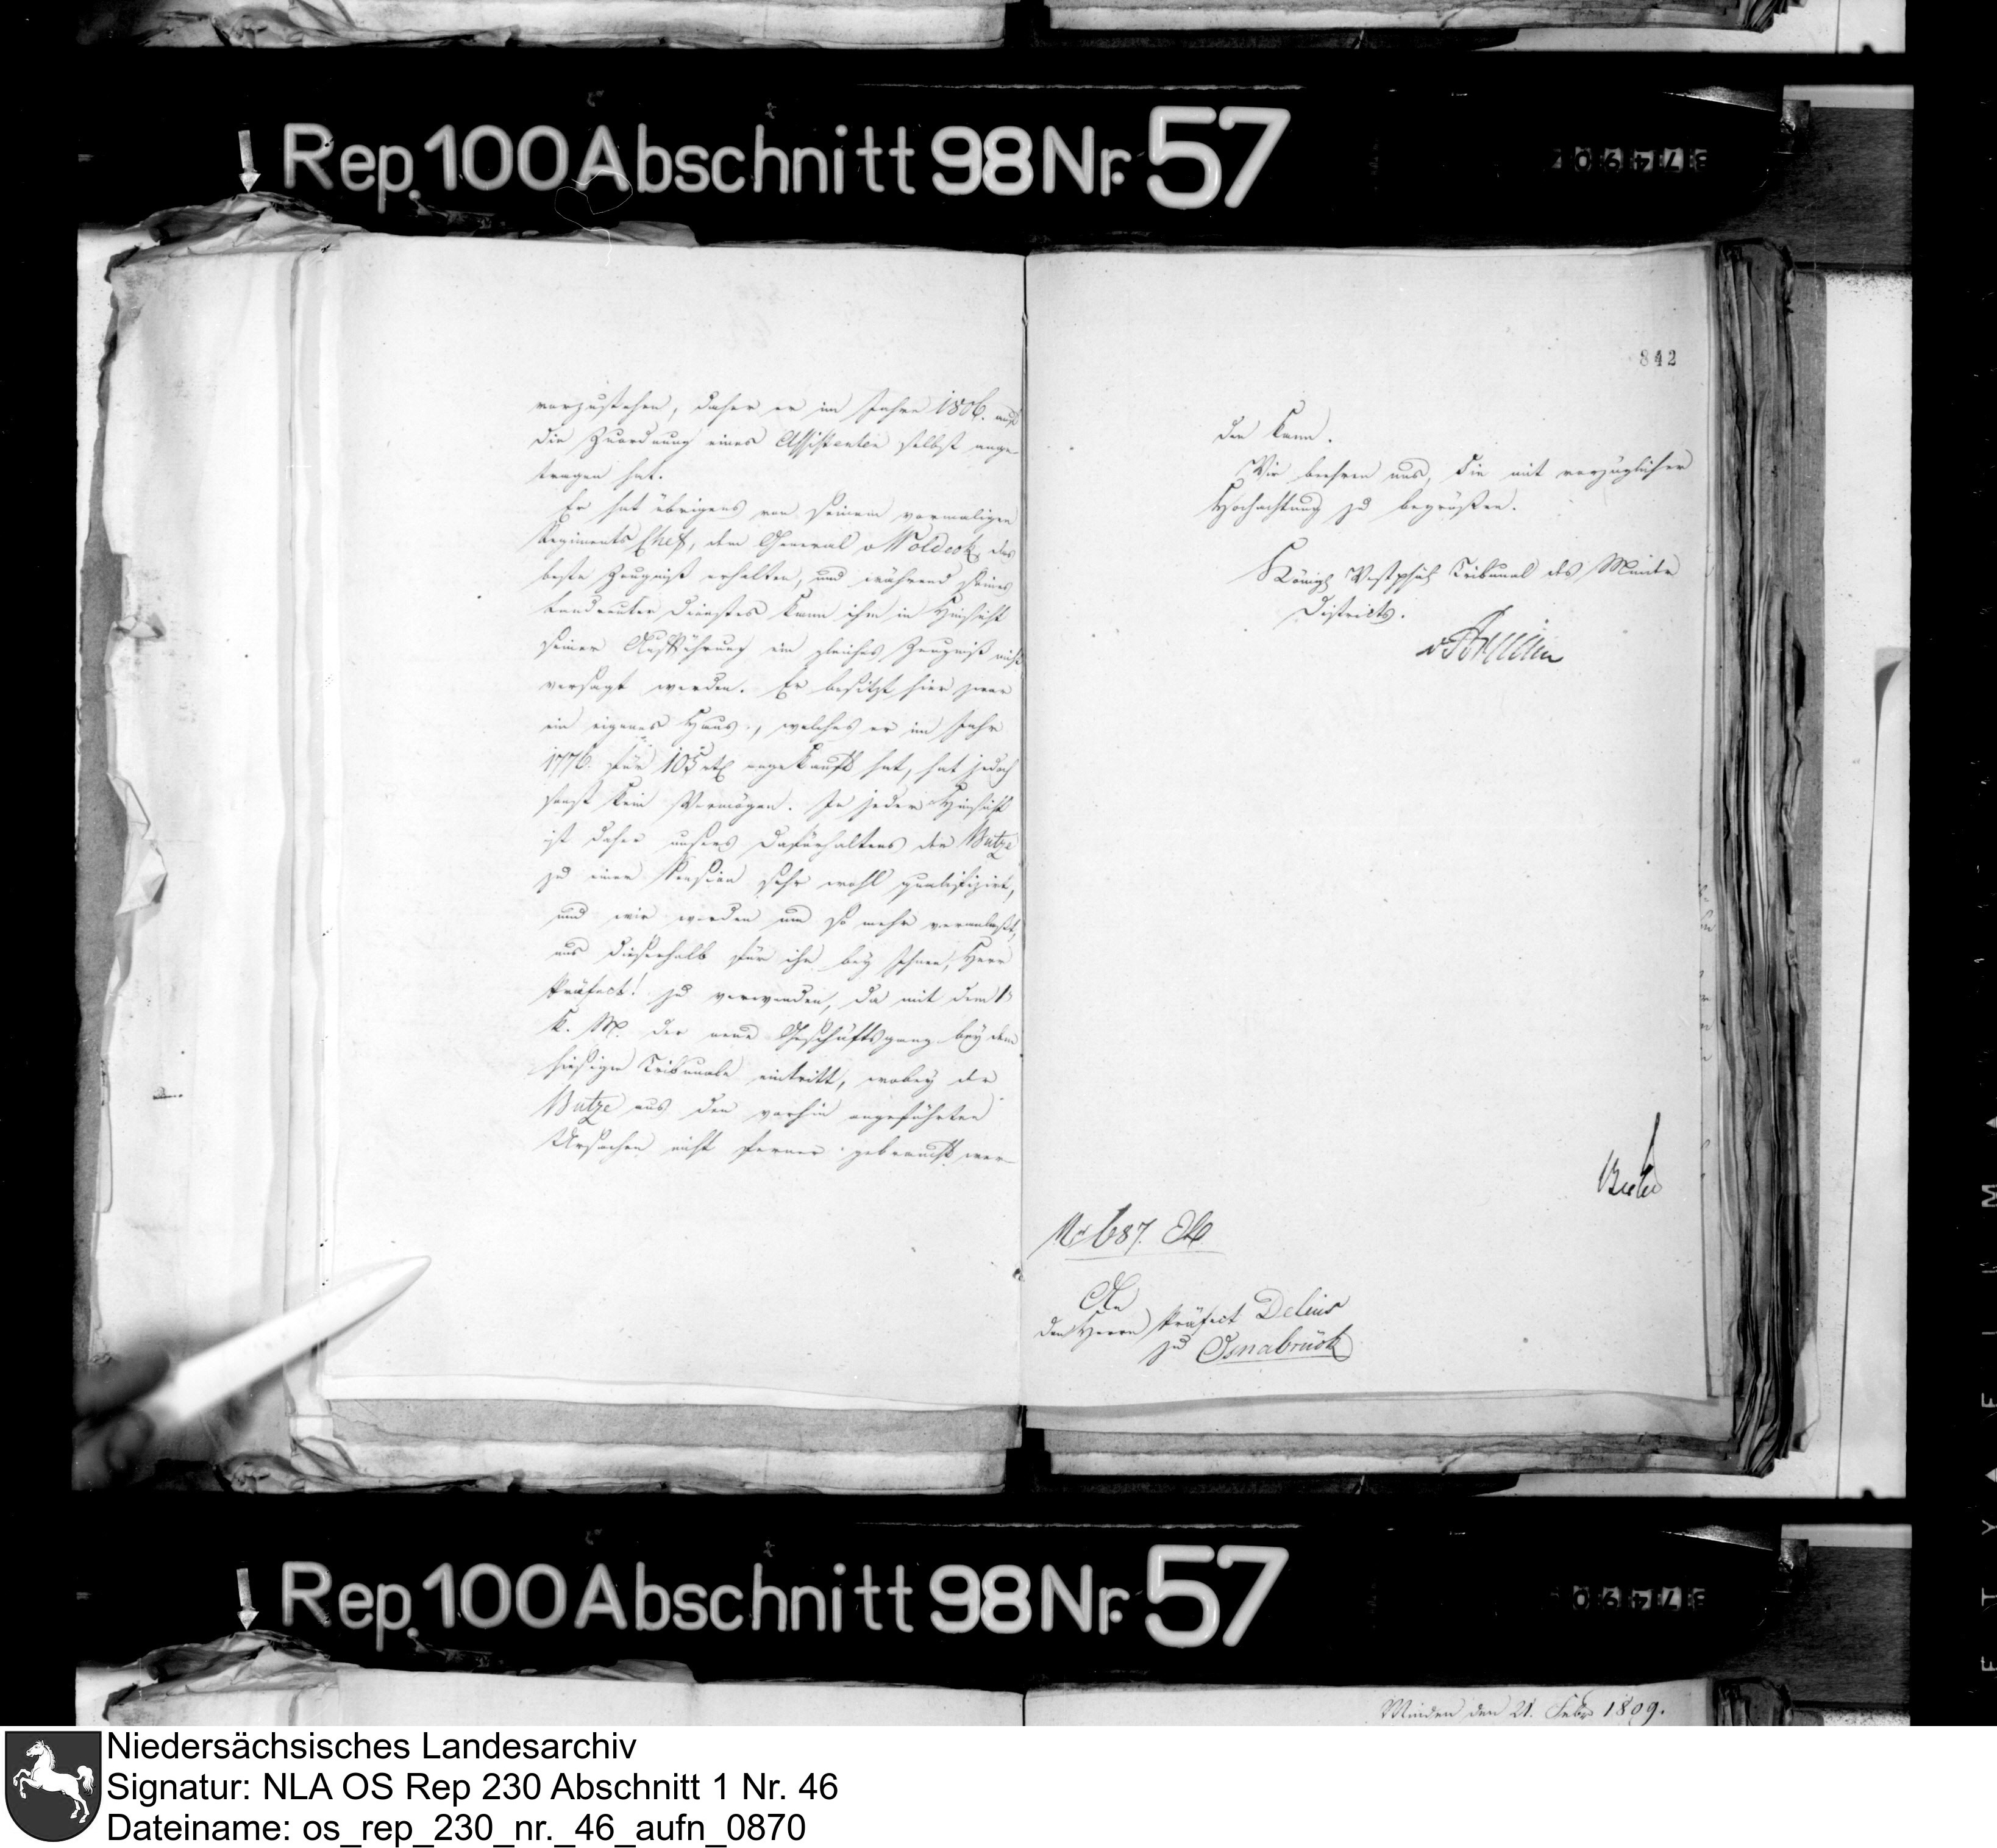 Rep. 100 Abschnitt 98 Nr. 57
vorzustehen, daher er im Jahre 1806. auf
die Zuordnung eines Assistenten selbst ange-
tragen hat.
Er hat übrigens von seinem vormaligen
Regiments Chef, dem General v Woldeck das
beste Zeugniß erhalten, und während seines
Dienstes kann ihm in Hinsicht
seiner Aufführung ein gleiches Zeugniß nicht
versagt werden. Er besitzt hier zwar
ein eigenes Haus, welches er im Jahr
1776. für 105 rtl angekauft hat, hat jedoch
sonst kein Vermögen. In jeder Hinsicht
ist daher unsers Dafürhaltens der Butze
zu einer Pension sehr wohl qualifizirt,
und wir werden um so mehr veranlaßt,
uns dieserhalb für ihn bey Ihnen, Herr
Präfect! zu verwenden, da mit dem 1
k. M. der neue Geschäftsgang bey dem
hiesigen Tribunale eintritt, wobey der
Butze aus den vorhin angeführten
Ursachen nicht ferner gebraucht wer-
842
den kann.
Wir beehren uns, Sie mit vorzüglicher
Hochachtung zu begrüßen.
Königl Westphäl Tribunal des Minder
Districts.
v Arnim
No 687.
An
den Herrn Präfect Delius
zu Osnabrück
Rep. 100 Abschnitt 98 Nr. 57
Minden den 21. Febr 1809.
Niedersächsisches Landesarchiv
Signatur: NLA OS Rep 230 Abschnitt 1 Nr. 46
Dateiname: os_rep_230_nr._46_aufn_0870